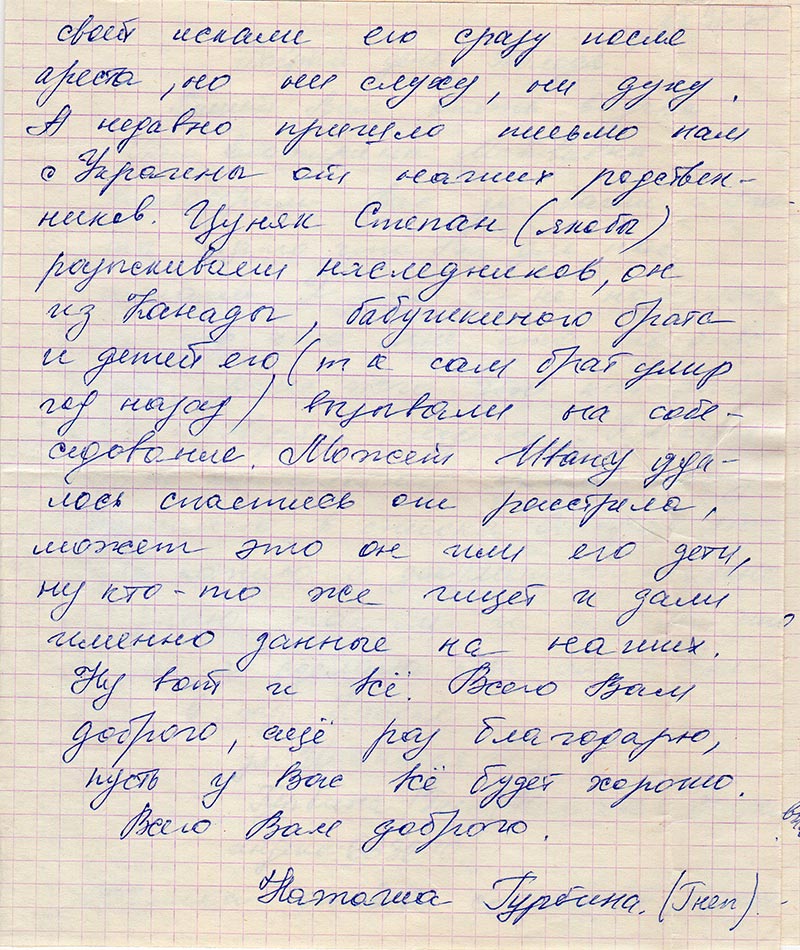 своей искали его сразу после
ареста, но ни слуху, ни духу.
А недавно пришло письмо нам
с Украины от наших родствен-
ников. Цуняк Степан (якобы)
разыскивает наследников, он
из Канады, бабушкиного брата
и детей его (т к сам брат умир
год назад) вызывали на собе-
седование. Может Ивану уда-
лось спастись от расстрела,
может это он или его дети,
ну кто-то же ищет и дали
именно данные на наших.
Ну вот и всё. Всего Вам
доброго, ещё раз благодарю,
пусть у Вас всё будет хорошо.
Всего Вам доброго.
Наташа Гурбина. (Гнеп).